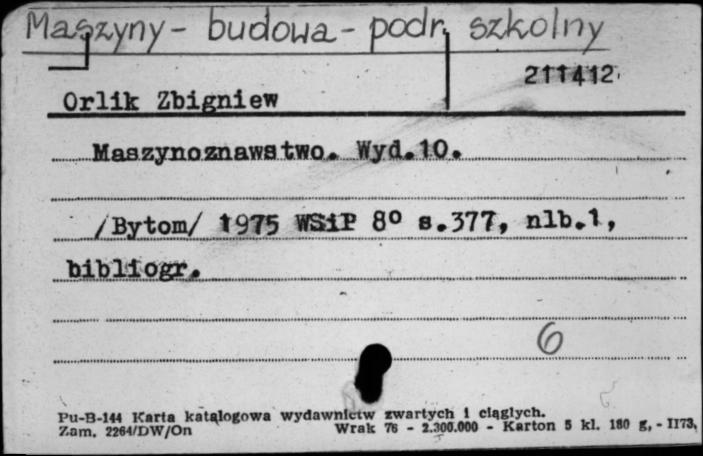 Maszyny - budowa - podr. szkolny
211412
Orlik Zbigniew
Maszynoznawstwo. Wyd.10.
/Bytom/ 1975 WSiP 8° s.377, nlb.1,
bibliogr.
6
Pu-B-144 Karta katalogowa wydawnictw zwartych i ciągłych.
Zam. 2264/DW/On Wrak 76 - 2.300.000 - Karton 5 kl. 180 g, - II73,